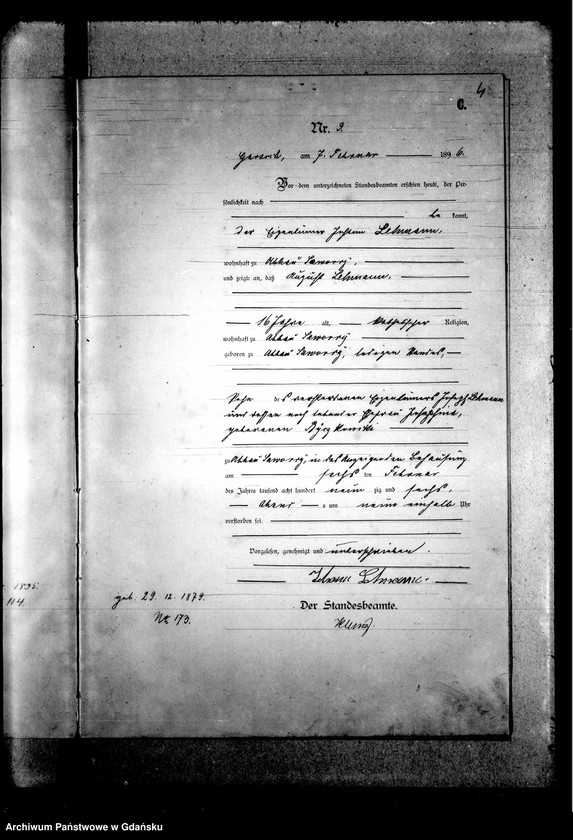 4
C.
Nr. 3.
am 7. Februar 1896.
Vor dem unterzeichneten Standesbeamten erschien heute, der Per-
sönlichkeit nach
be kannt,
der Eigentümer Johann Lehmann,
wohnhaft zu Abbau Sworry,
und zeigte an, daß August Lehmann,
16 Jahre alt, katholischer Religion,
wohnhaft zu Abbau Sworry
geboren zu Abbau Sworry, ledigen Standes,
Sohn des verstorbenen Eigentümers Joseph Lehmann
und dessen noch lebender Ehefrau Josephine,
geborenen
zu Abbau Sworry, in des Anzeigenden Behausung
am sechs ten Februar
des Jahres tausend acht hundert neun zig und sechs,
Abend s um neun einhalb Uhr
verstorben sei.
Vorgelesen, genehmigt und unterschrieben.
Johann Lehmann.
Der Standesbeamte.
geb. 29. 12. 1879.
No 173.
1895.
104.
Archiwum Państwowe w Gdańsku